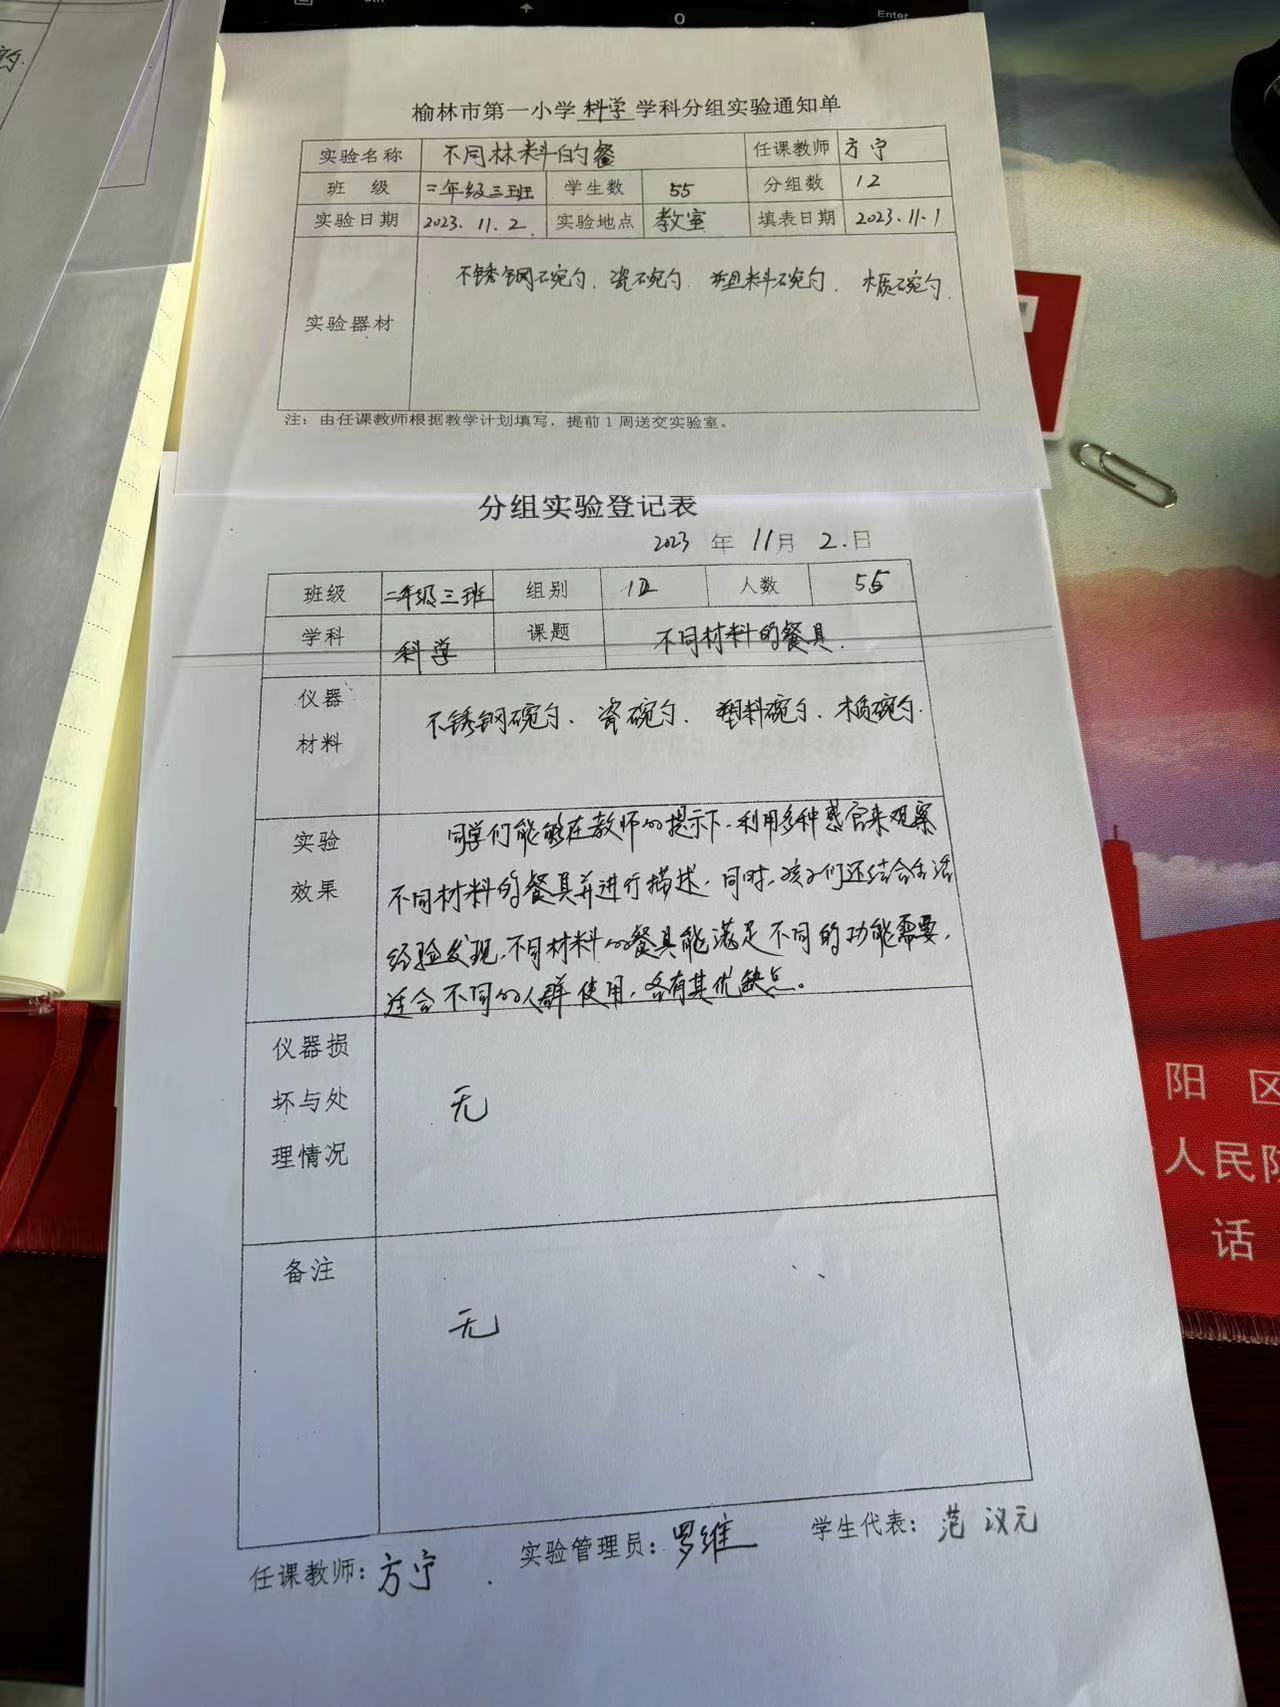 Enter
榆林市第一小学 科学 学科分组实验通知单
实验名称 不同材料的餐 任课教师 方宁
班 级 二年级三班 学生数 55 分组数 12
实验日期 2023.11.2. 实验地点 教室 填表日期 2023.11.1
实验器材 不锈钢碗勺、瓷碗勺、塑料碗勺、木质碗勺.
注：由任课教师根据教学计划填写，提前1周送交实验室。
分组实验登记表
2023 年 11月 2.日
班级 二年级三班 组别 12 人数 55
学科 科学 课题 不同材料的餐具.
仪器 不锈钢碗勺、瓷碗勺、塑料碗勺、木质碗勺.
材料
实验 同学们能够在教师的提示下,利用多种感官来观察
效果 不同材料的餐具并进行描述,同时,孩子们还结合生活
经验发现,不同材料的餐具能满足不同的功能需要,
适合不同的人群使用,各有其优缺点。
仪器损
坏与处 无
理情况
备注
无
任课教师：方宁 实验管理员：罗维 学生代表：范议元
阳 区
人民防
话